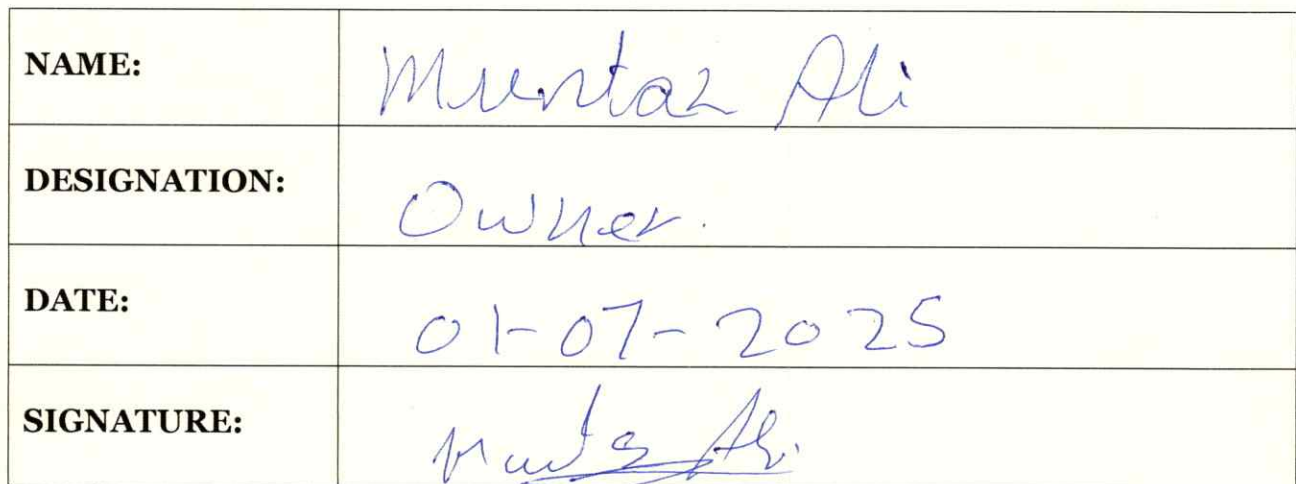 NAME: Muntaz Ali
DESIGNATION: Owner.
DATE: 01-07-2025
SIGNATURE: